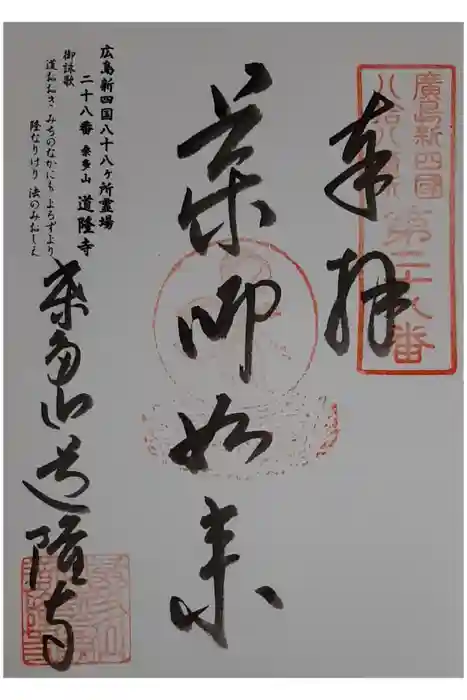 廣島新四國
八拾八ヶ所
第二十八番
奉拝
薬師如来
広島新四国八十八ヶ所霊場
二十八番 桑多山 道隆寺
御詠歌
道おおき みちのなかにも よろずより
隆なりけり 法のみおしえ
桑多山道隆寺